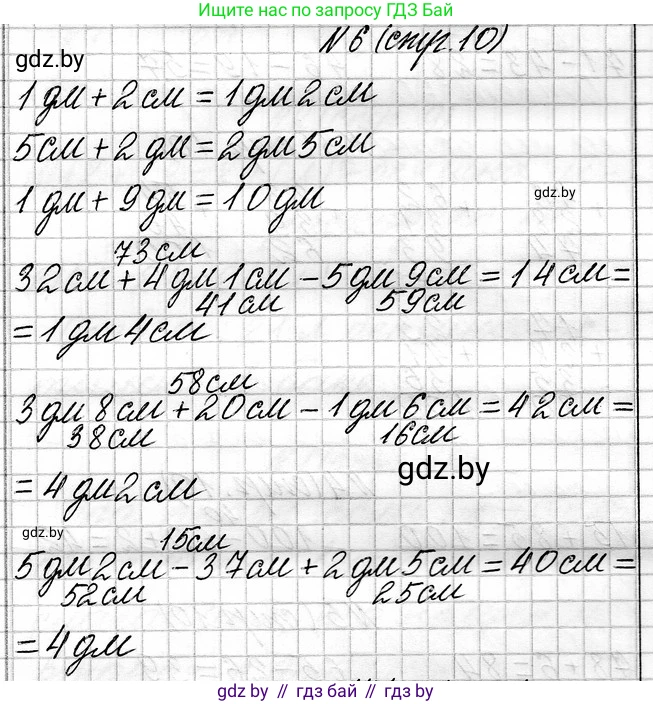 Ищите нас по запросу ГДЗ Бай
№6 (стр. 10)
gdz.by
1 дм + 2 см = 1 дм 2 см
5 см + 2 дм = 2 дм 5 см
1 дм + 9 дм = 10 дм
gdz.by
73 см
32 см + 4 дм 1 см - 5 дм 9 см = 14 см =
41 см 59 см
= 1 дм 4 см
58 см
3 дм 8 см + 20 см - 1 дм 6 см = 42 см =
38 см 16 см
gdz.by
= 4 дм 2 см
gdz.by
15 см
5 дм 2 см - 37 см + 2 дм 5 см = 40 см =
52 см 25 см
= 4 дм
gdz.by // гдз бай // gdz.by